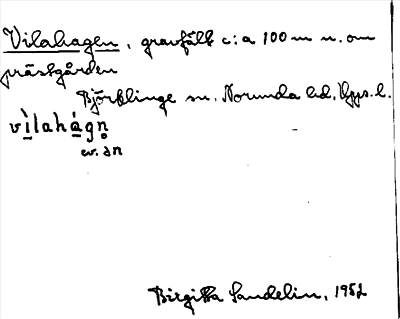 Vilahagen, gravfält c:a 100 m n. om
prästgården
Björklinge sn. Norunda hd. Upps. l.
vìlahágn̥
ev. ən
Birgitta Sandelin, 1952